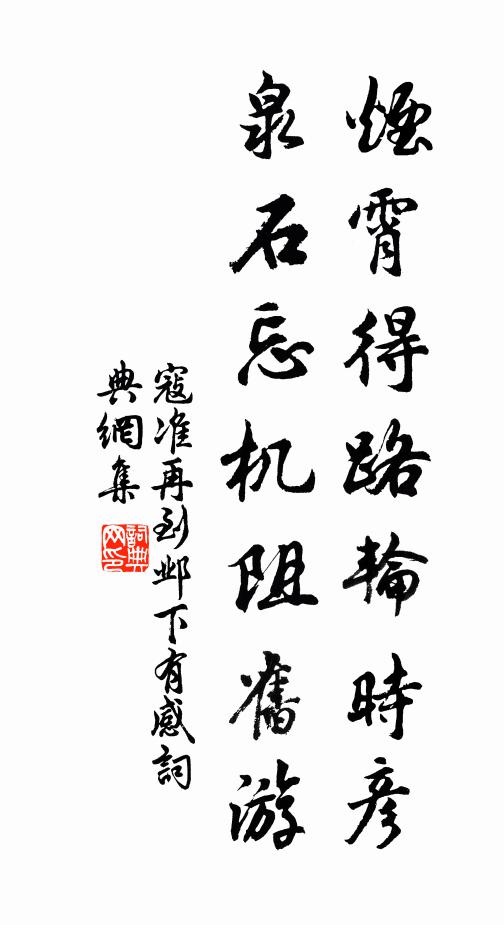 煙霄得路輪時彥
泉石忘机阻舊游
寇准再到邺下有感詞
典網集
詞典网印